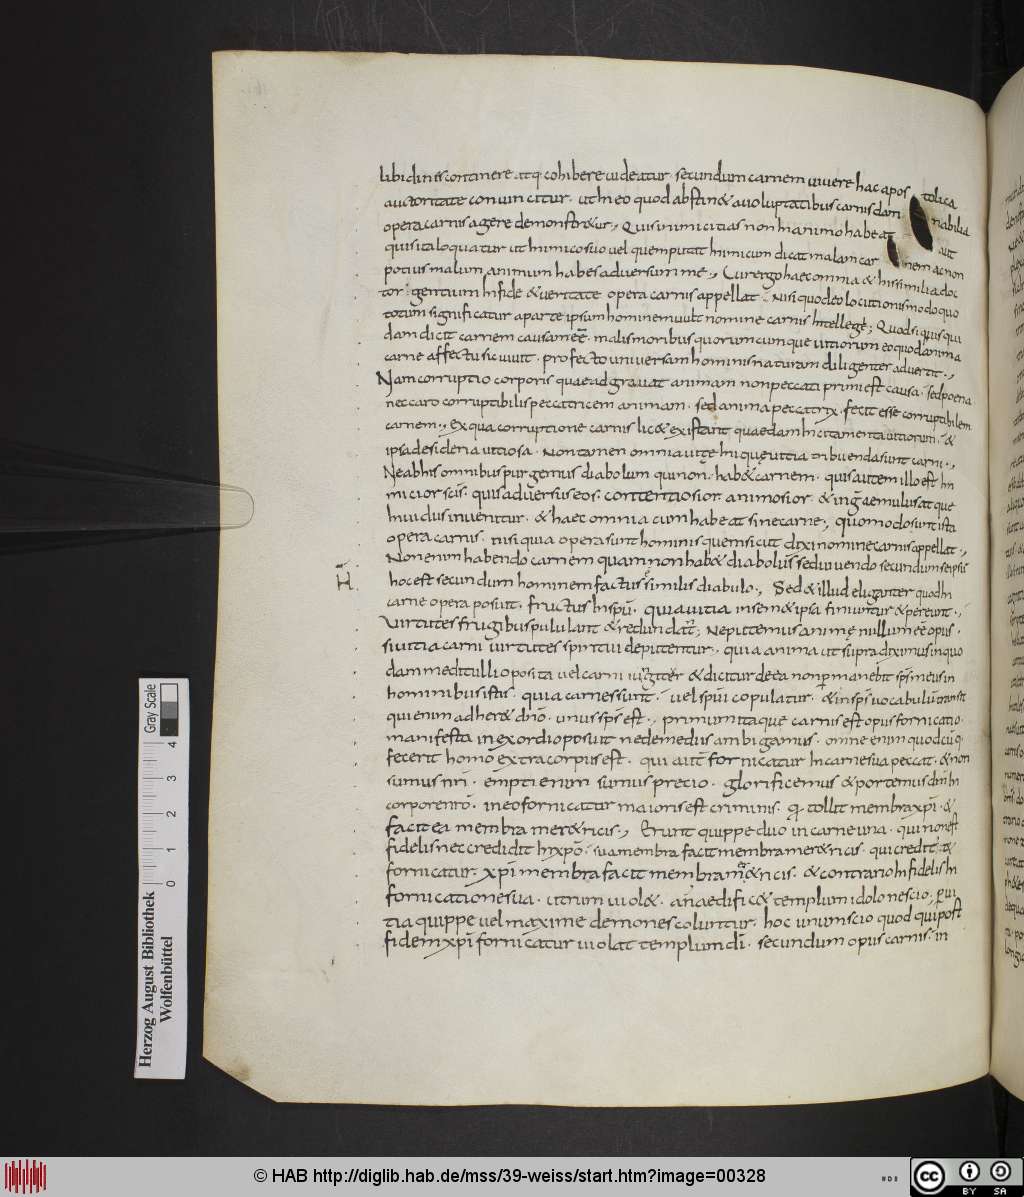 libidinis continere atq; cohibere uideatur · secundum carnem uiuere hac apos tolica
auctoritate conuincitur · ut in eo quod abstin& a uoluptatibus carnis dam nabilia
opera carnis agere demonstr&ur ·, Quis inimicitias non in animo habeat aut
quis ita loquatur ut inimico suo uel quem putat inimicum dicat malam car nem ac non
potius malum animum habes aduersum me ·, Cur ergo haec omnia & his similia doc
tor gentium in fide & ueritate opera carnis appellat · Nisi quod eo locutionis modo quo
totum significatur a parte ipsum hominem uult nomine carnis intellege; Quod si quis qui
dam dicit carnem causam eē · malis moribus quorumcumque uitiorum eo quod anima
carne affectu sic uiuit · profecto uniuersam hominis naturam diligenter aduertit ·,
Nam corruptio corporis quae adgrauat animam non peccati primi est causa · sed poena
nec caro corruptibilis peccatricem animam · sed anima peccatrix · fecit esse corruptibilem
carnem ·, Ex qua corruptione carnis lic& existant quaedam incitamenta uitiorum · &
ipsa desideria uitiosa · Non tamen omnia uitę iniquę uitia tribuenda sunt carni ·,
Ne ab his omnibus purgemus diabolum qui non hab& carnem · quis autem illo est in
imicior scīs · quis aduersus eos · contentiosior animosior · & in gaemulus atque
inuidus inuenitur · & haec omnia cum habeat sine carne, quomodo sunt ista
opera carnis · nisi quia opera sunt hominis quem sicut dixi nomine carnis appellat ·,
Non enim habendo carnem quam non hab& diabolus sed uiuendo secundum se ipsū
hoc est secundum hominem factus similis diabulo ·, Sed & illud eliganter quod in
carne opera posuit · fructus in spū · quia uitia in sem&ipsa finiuntur & pereunt ·,
Virtutes frugibus pululant & redundant; Ne putemus animę nullum eē opus ·
si uitia carni uirtutes spiritui deputentur · quia anima ut supra diximus in quo
dam meditullio posita uel carni iungitur & dicitur de ea non permanebit sps meus in
hominibus istis · quia carnes sunt · uel spui copulatur · & in sps uocabulū transit
qui enim adher& dnō · unus sps est ·, primum itaque carnis est opus fornicatio ·
manifesta in exordio posuit ne de medius ambigamus · omne enim quodcūq;
fecerit homo extra corpus est · qui autē fornicatur in carne sua peccat · & non
sumus nri · empti enim sumus precio · glorificemus & portemus dnm in
corpore nrō · in eo fornicatur maioris est criminis · qi tollit membra xpi · &
facit ea membra mer&ricis ·, Erunt quippe duo in carne una · qui non est
fidelis nec credidit in xpō · sua membra facit membra mer&ricis · qui credit &
fornicatur · xpi membra facit membra mer&ricis · & contrario infidelis in
fornicatione sua · utrum uiol& · an aedific& templum idolo nescio; per ui
tia quippe uel maxime demones coluntur · hoc unum scio quod qui post
fidem xpi fornicatur uiolat templum dī · secundum opus carnis · in
Herzog August Bibliothek
Wolfenbüttel
0 1 2 3 4
Gray Scale
© HAB http://diglib.hab.de/mss/39-weiss/start.htm?image=00328
cc
BY SA